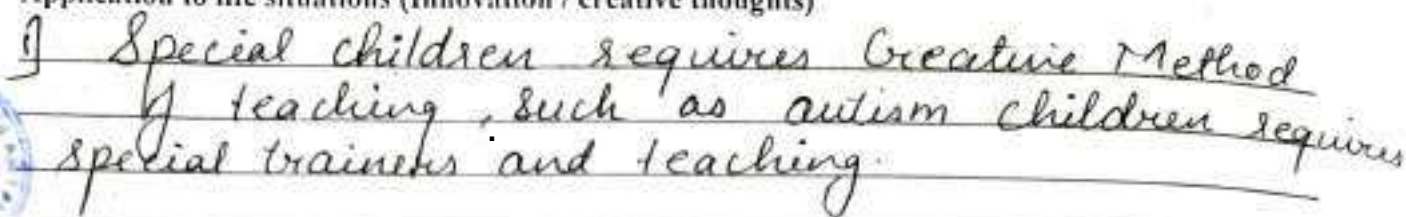 Application to life situations (Innovation / creative thoughts)
1] Special children requires Creative Method
of teaching, such as autism children requires
special trainers and teaching.